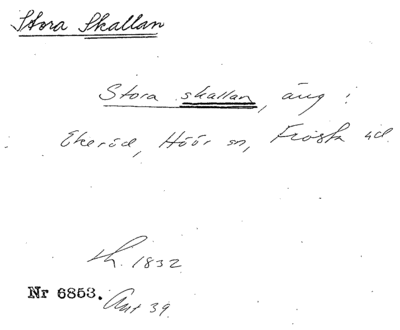 Stora Skallan
Stora skallan, äng i
Ekeröd, Höör sn, Frosta hd.
lh. 1832
Nr 6853. Ant 39.